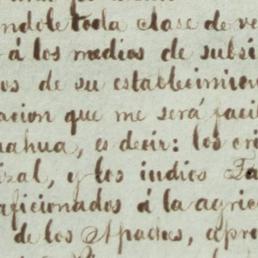 ndole toda clase de ve
á los medios de subsi
os de su establecimien
acion que me será faci
uahua, es decir: los cri
izal, y los indios Ta
aficionados á la agric
de los Apaches, apro